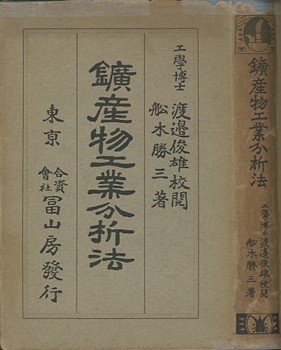 工學博士 渡邊俊雄校閲
舩木勝三著
鑛産物工業分析法
東京 合資會社 冨山房發行
鑛産物工業分析法
工學博士 渡邊俊雄校閲
舩木勝三著